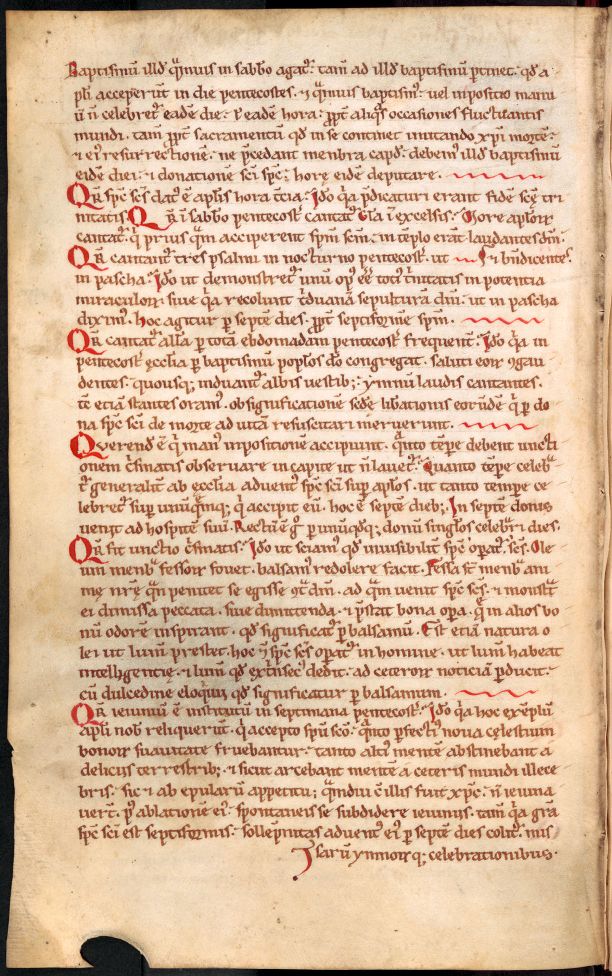 Baptismū illđ q̄mvis in sabbo agat᷑. tam̄ ad illđ baptismū ꝑtinet. qđ a
pli acceperūt in die pentecostes. ⁊ q̄mvis baptism᷑ vel inpositio manū
ū n̄ celebret᷑ eadē die. ł eadē hora. ꝓpt̄ aliqͣs occasiones fluctuantis
mundi. tam̄ ꝓpt̄ sacramentū qđ in se continet imitando xp̄i mortē.
⁊ ei᷑ resurrectionē. ne p̄cedant menbra capđ. debem᷑ illđ baptismū
eidē diei. ⁊ donationē sc̄i sp̄c. horę eidē deputare.
Qr̄ sp̄c sc̄s dat᷑ ē aplis hora t̄cia. Ido q̄a p̄dicaturi erant fidē scę tri
nitatis. Qr̄ ī sabbo pentecost᷑ cantat᷑ Gła in excelsis. More aploꝝ
cantat᷑. q̄ prius q̄m acciperent sp̄m scm̄. in tēplo erāt laudantes dm̄.
Qr̄ cantant᷑ tres psalmi in nocturno pentecost᷑. ut ⁊ bn̄dicentes.
in pascha. Ido ut demonstret᷑ unū op᷑ eē toti᷑ t̄nitatis in potentia
miraculoꝝ. sive q̄a recolunt t̄duanā sepulturā dn̄i. ut in pascha
dixim᷑. hoc agitur ꝑ septē dies. ꝓpt̄ septiformē sp̄m.
Qr̄ cantat᷑ alla ꝑ totā ebdomadam pentecost᷑ frequent̄. Ido q̄a in
pentecost᷑ ęcclia ꝑ baptismū poplos dō congregat. saluti eoꝝ ꝯgau
dentes. quousq; induant᷑ albis vestib;. ymnū laudis cantantes.
tē etiā stantes oram᷑. ob significationē sedę libationis eorūdē q̄ ꝑ do
na sp̄c sc̄i de morte ad vitā resuscitari meruerunt.
Querend᷑ ē q̄ man᷑ inpositionē accipiunt. q̄nto tēpe debent uncti
onem c̄smatis observare in capite ut n̄ lavet᷑. Quanto tēpe celeb̄
t᷑ generalit̄ ab ęcclia advent᷑ sp̄c sc̄i sup̄ aplos. ut tanto tempe ce
lebret᷑ sup̄ unūq̄mq; q̄ accipit eū. hoc ē septē dieb;. In septē donis
venit ad hospitē suū. Rectū ē gͦ ꝑ unūqđq; donū singlos celebr̄ti dies.
Qr̄ fit unctio c̄smatis. Ido ut sciam᷑ qđ invisibilit̄ sp̄c opat᷑ sc̄s. Ole
um menb̄ fessoꝝ fovet. balsam᷑ redolere facit. Fessa st̄ menb̄ ani
mę nr̄ę q̄n penitet se egisse ꝯt̄ dm̄. ad q̄m venit sp̄c sc̄s. ⁊ monst̄t
ei dimissa peccata. sive dimittenda. ⁊ p̄stat bona opa. q̄ in alios bo
nū odorē inspirant. qđ significat᷑ ꝑ balsamū. Est etiā natura o
lei ut lum̄ prestet. hoc ⁊ sp̄c sc̄s opat᷑ in homine. ut lum̄ habeat
intelligentię. ⁊ lum̄ qđ ext̄nsec᷑ dedit. ad ceteroꝝ noticiā ꝑducit.
cū dulcedine eloqͥii. qđ significatur ꝑ balsamum.
Qr̄ ieiuniū ē institutū in septimana pentecost᷑. Ido q̄a hoc exēplū
apli nob̄ reliquerūt. q̄ accepto spū sc̄o. q̄nto ꝑfecti᷑ nova celestium
bonoꝝ suavitate fruebantur. tanto alti᷑ mentē abstinebant a
deliciis terrestrib;. ⁊ sicut arcebant mentē a ceteris mundi illece
bris. sic ⁊ ab epularū appetitu; q̄mdiu c̄ illis fuit xp̄c. n̄ ieiuna
uert̄. p᷑ ablationē ei᷑. spontaneis se subdidere ieiuniis. tam̄ q̄a gr̄a
sp̄c sc̄i est septiformis. sollēpnitas advent᷑ ei᷑ ꝑ septē dies colit᷑. mis
sarū ymnoꝝq; celebrationibus.